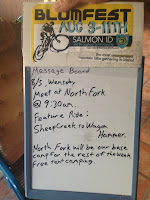 BLUMFEST
AUG 3-11TH
SALMON ID
Message Board
8/5, Wensday
Meet at North Fork
@ 9:30am.
Feature Rise:
Sheep Creek to Wagon
Hammer.
North Fork will be our base
camp for the rest of the week
Free tent camping.